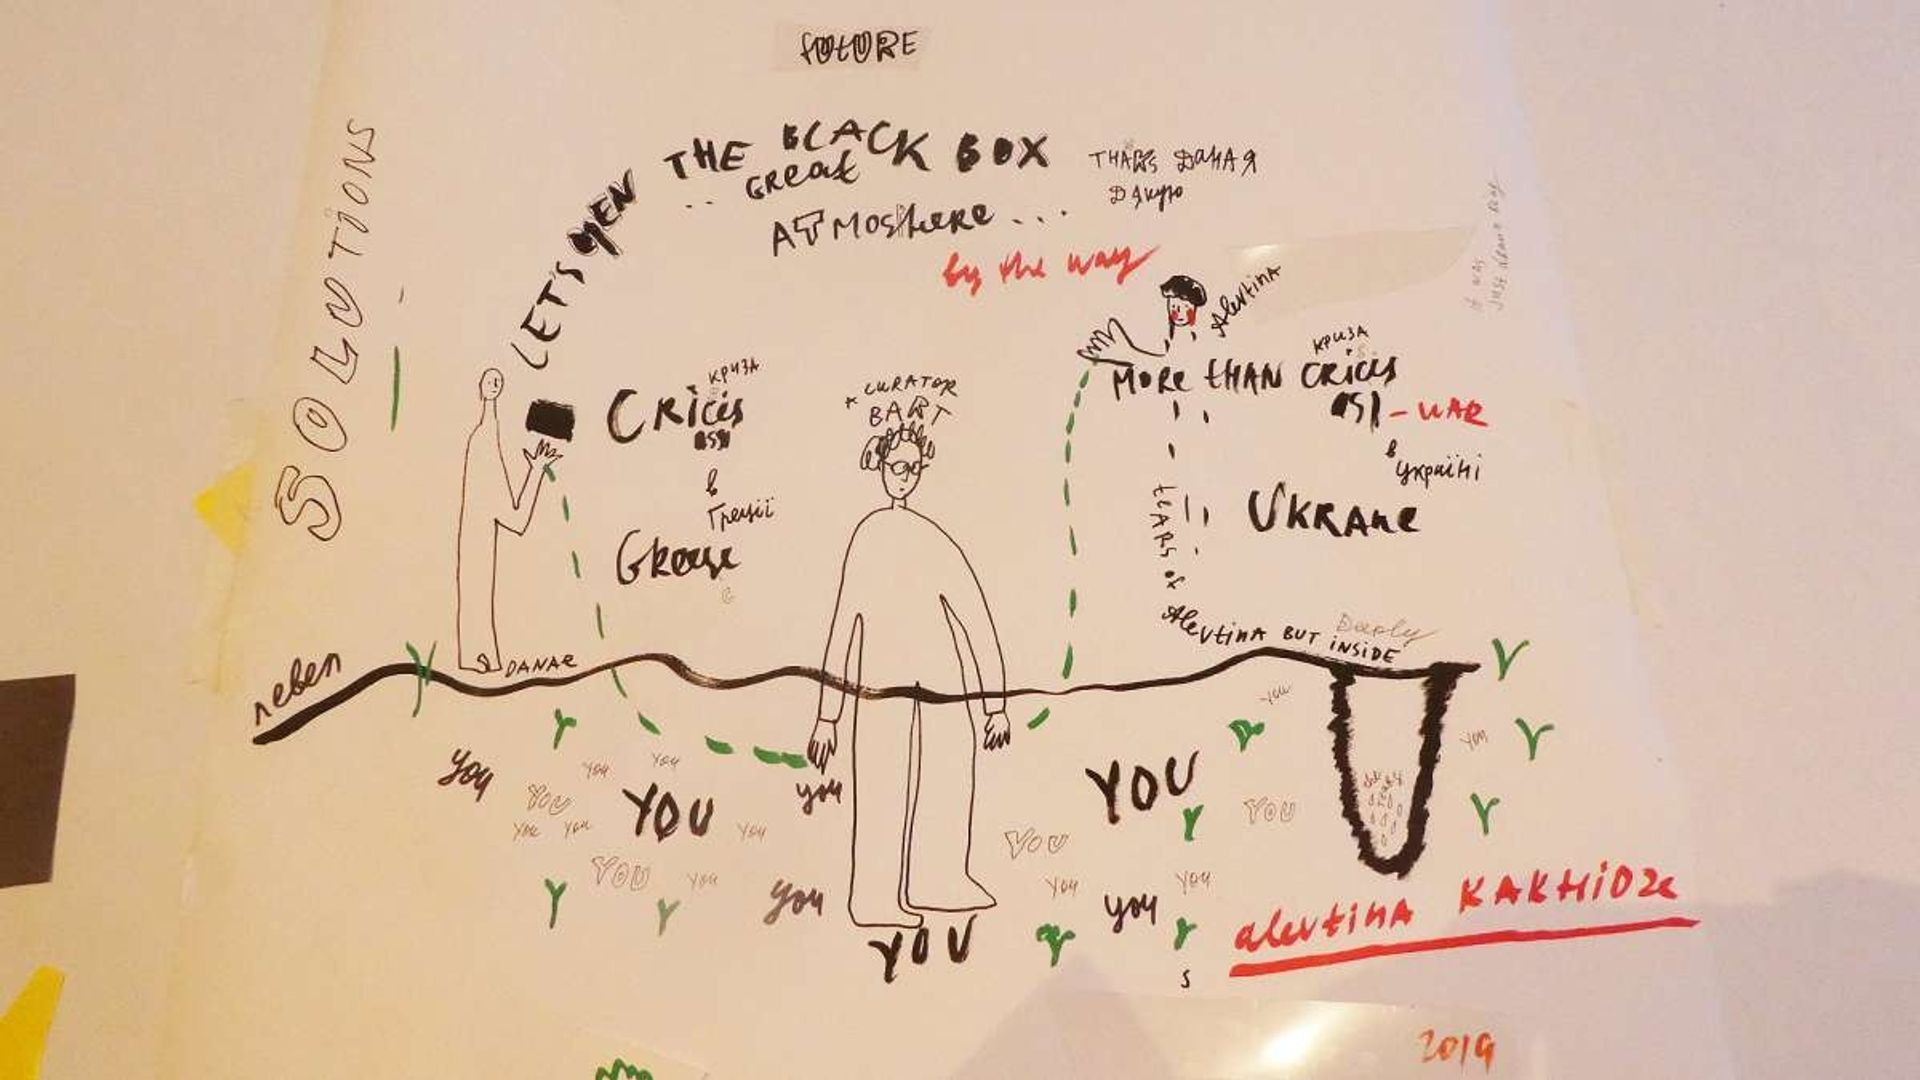 FUTURE
SOLUTIONS
LET'S OPEN THE BLACK BOX
GREAT
ATMOSHERE ...
THANKS ДАНАЯ
Дякую
by the way
Alevtina
it was
CRICIS
криза
в
Греції
* CURATOR
BART
MORE THAN CRICIS
криза
- WAR
в
Україні
UKRANE
TEARS OF
Alevtina BUT Deeply
INSIDE
DANAE
you
YOU
YOU
YOU
YOU
YOU
YOU
YOU
YOU
YOU
YOU
you
YOU
YOU
YOU
YOU
YOU
YOU
YOU
you
YOU
you
YOU
S
alevtina KAKHIDZE
2019